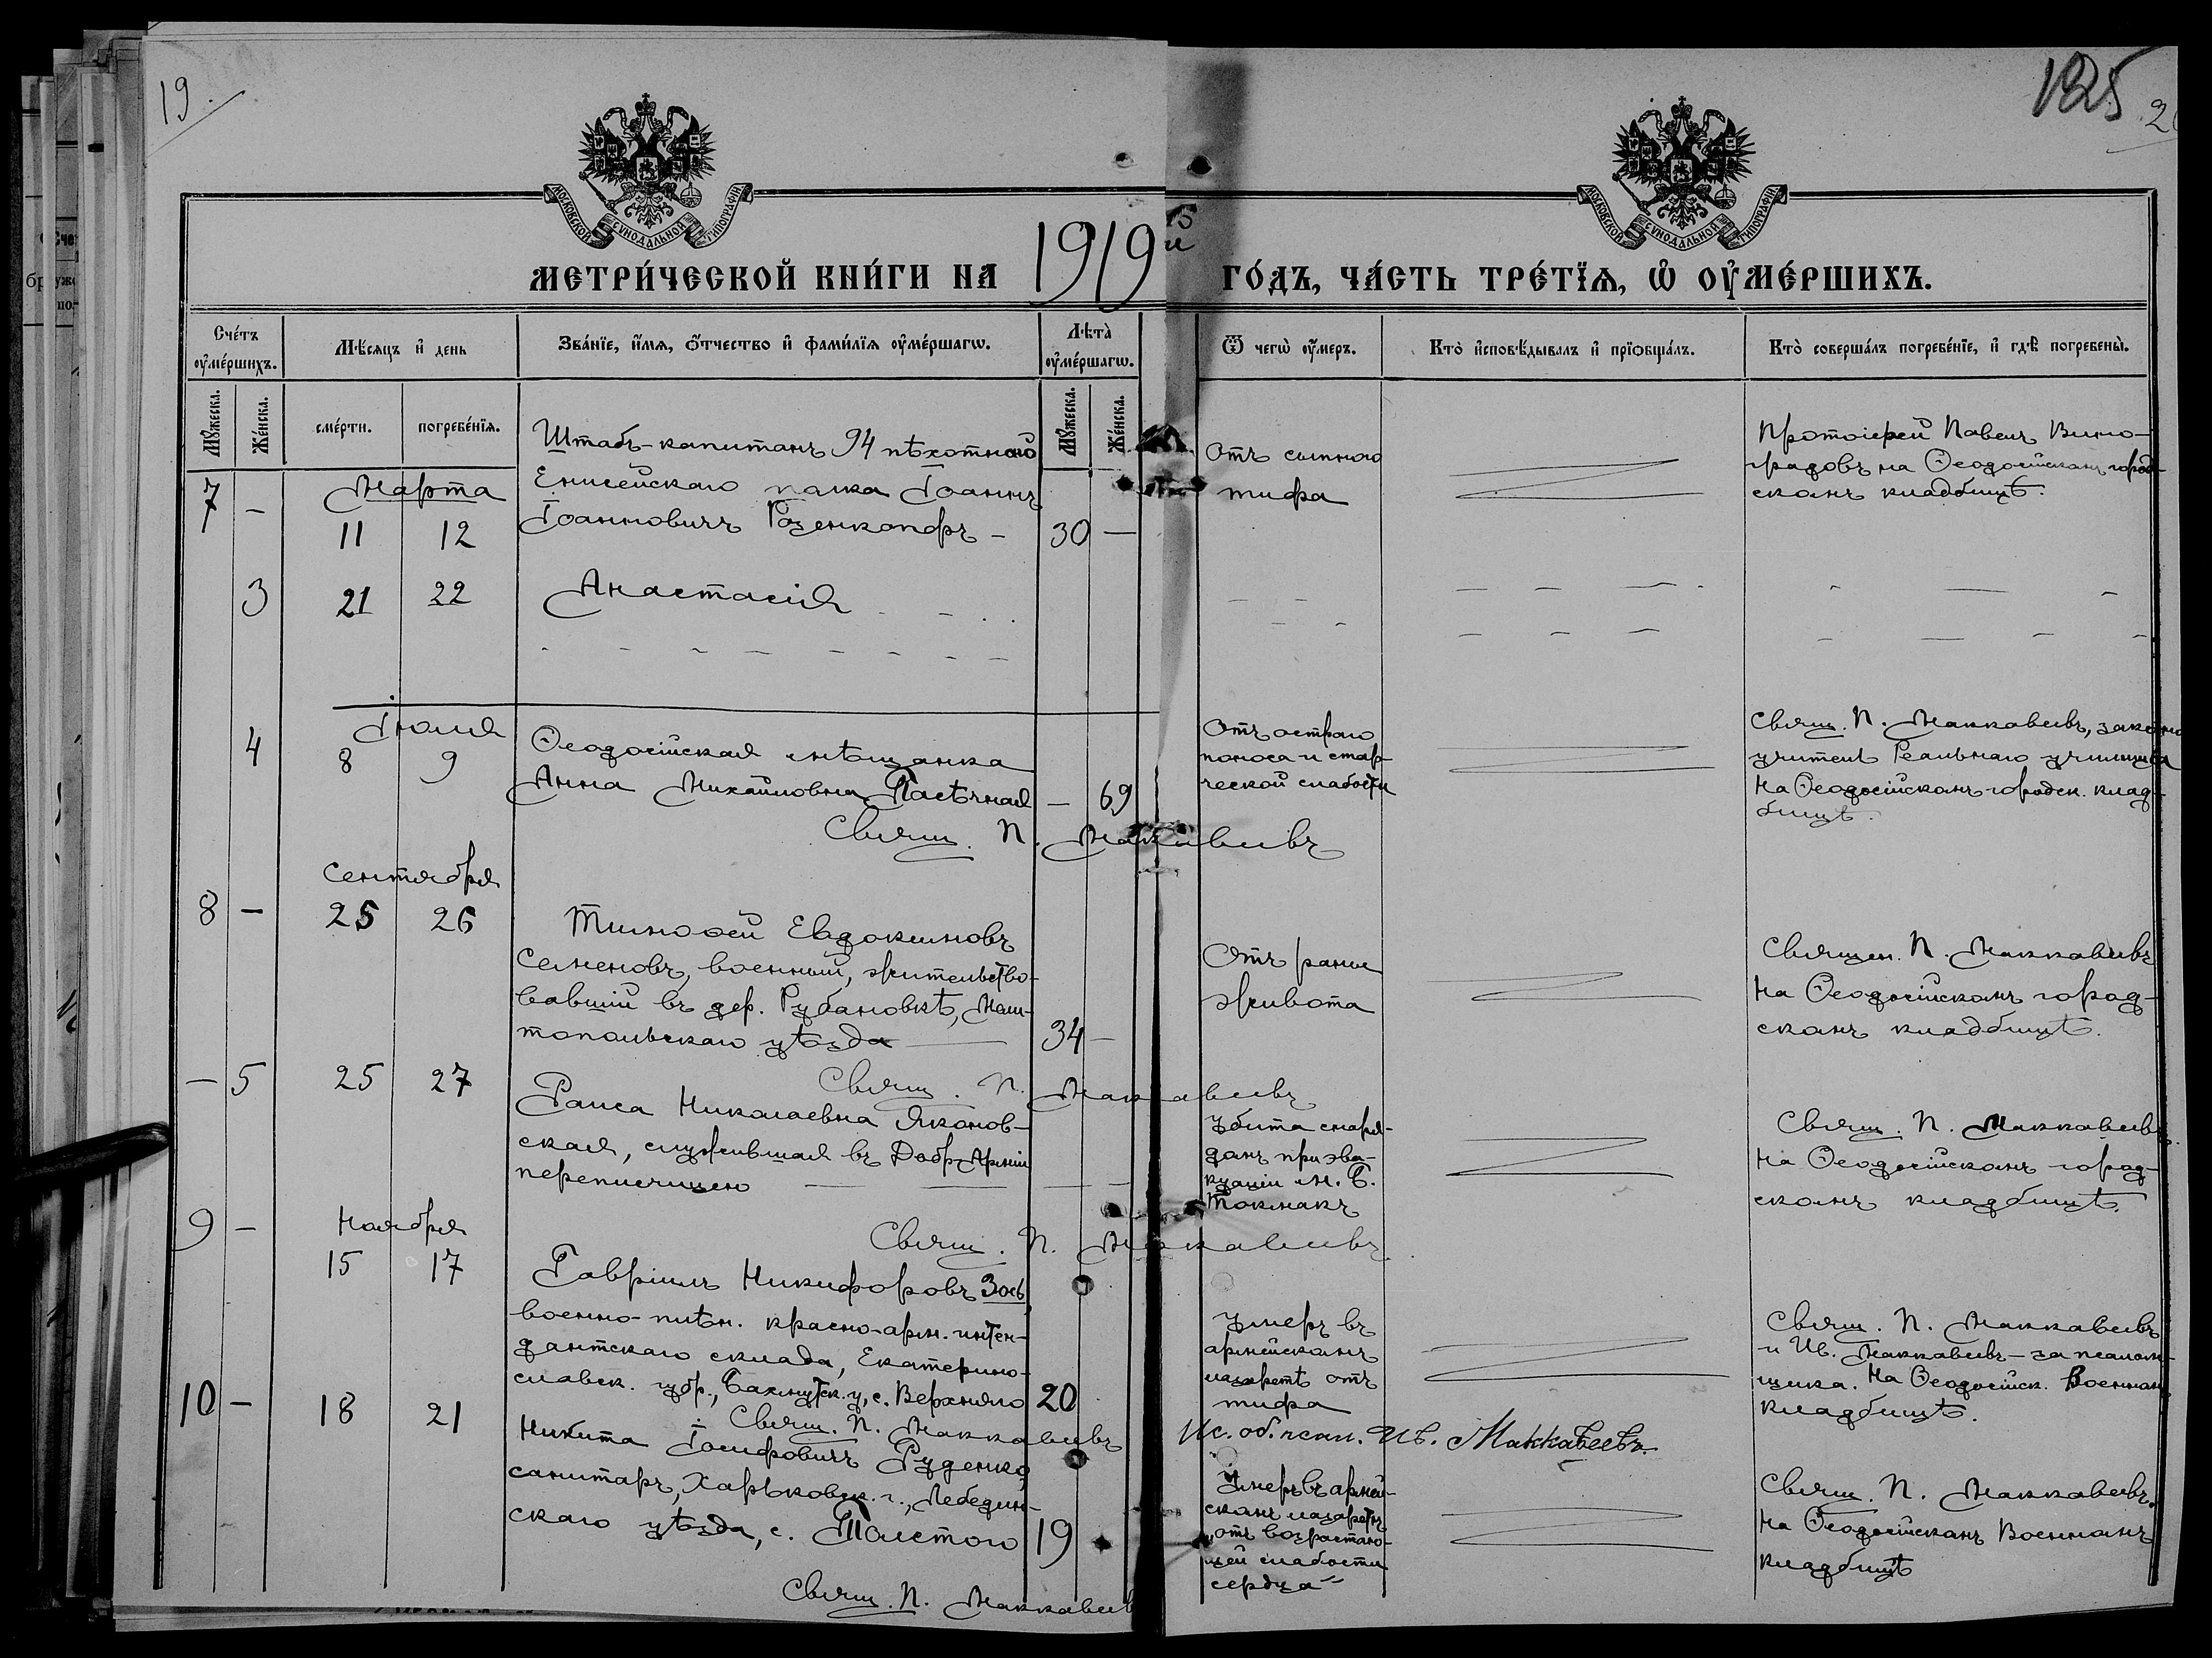 19.
1825
МОСКОВСКОЙ СѴНОДАЛЬНОЙ ТИПОГРАФІИ
МОСКОВСКОЙ СѴНОДАЛЬНОЙ ТИПОГРАФІИ
МЕТРИ́ЧЕСКОЙ КНИ́ГИ НА 1919й ГО́ДЪ, ЧА́СТЬ ТРЕ́ТЇѦ, Ѡ҆ ОУ҆МЕ́РШИХЪ.
Сче́тъ оу҆ме́ршихъ.
Мѣ́сѧцъ и҆ день
Зва́нїе, и҆́мѧ, ѻ҆́тчество и҆ фами́лїѧ оу҆ме́ршагѡ.
Лѣта̀ оу҆ме́ршагѡ.
Ѿ чегѡ̀ оу҆́меръ.
Кто̀ и҆сповѣ́дывалъ и҆ прїѻбща́лъ.
Кто̀ соверша́лъ погребе́нїе, и҆ гдѣ̀ погребены̀.
Мꙋ́жеска.
Же́нска.
сме́рти.
погребе́нїѧ.
Мꙋ́жеска.
Же́нска.
7 -
Марта
11 12
Штабъ-капитанъ 94 пѣхотнаго
Енисейскаго полка Іоаннъ
Іоанновичъ Розенкопфъ -
30 -
Отъ сыпного
тифа
Протоіерей Павелъ Вино-
градовъ на Ѳеодосійскомъ город-
скомъ кладбищѣ.
3 21 22
Анастасія
4
Іюля
8 9
Ѳеодосійская мѣщанка
Анна Михайловна Пасѣчная
- 69
Отъ остраго
поноса и стар-
ческой слабости
Свящ. П. Маккавеевъ, законо
учитель Реальнаго училища
На Ѳеодосійскомъ городск. клад-
бищѣ.
Свящ. П. Маккавеевъ
Сентября
8 - 25 26
Тимоѳей Евдокимовъ
Семеновъ, военный, жительство-
вавшій въ дер. Рубановкѣ, Мели-
топольскаго уѣзда
34 -
Отъ раны
живота
Священ. П. Маккавеевъ
На Ѳеодосійскомъ город-
скомъ кладбищѣ.
Свящ. П. Маккавеевъ
- 5 25 27
Раиса Николаевна Яканов-
ская, служившая въ Добр-Арміи
переписчицею
Убита снаря-
домъ при эва-
куаціи м. Б.
Токмакъ
Свящ. П. Маккавеевъ.
На Ѳеодосійскомъ город-
скомъ кладбищѣ.
Свящ. П. Маккавеевъ.
9 -
Ноября
15 17
Гавріилъ Никифоровъ Зось
военно-плѣн. красно-арм. интен-
дантскаго склада, Екатерино-
славск. губр., Бахмутск. у, с. Верхняго
20
Умеръ въ
армейскомъ
лазаретѣ отъ
тифа
Свящ. П. Маккавеевъ
и Ив. Маккавеевъ - за псалом-
щика. На Ѳеодосійск. Военномъ
кладбищѣ.
Свящ. П. Маккавеевъ
Ис. об. псал. Ив. Маккавеевъ.
10 - 18 21
Никита Іосифовичъ Руденко,
санитаръ, Харьковск. г., Лебедин-
скаго уѣзда, с. Толстого
19
Умеръ въ армей-
скомъ лазаретѣ
"отъ возрастаю-
щей слабости
сердца"
Свящ. П. Маккавеевъ.
На Ѳеодосійскомъ Военномъ
кладбищѣ
Свящ. П. Маккавеевъ